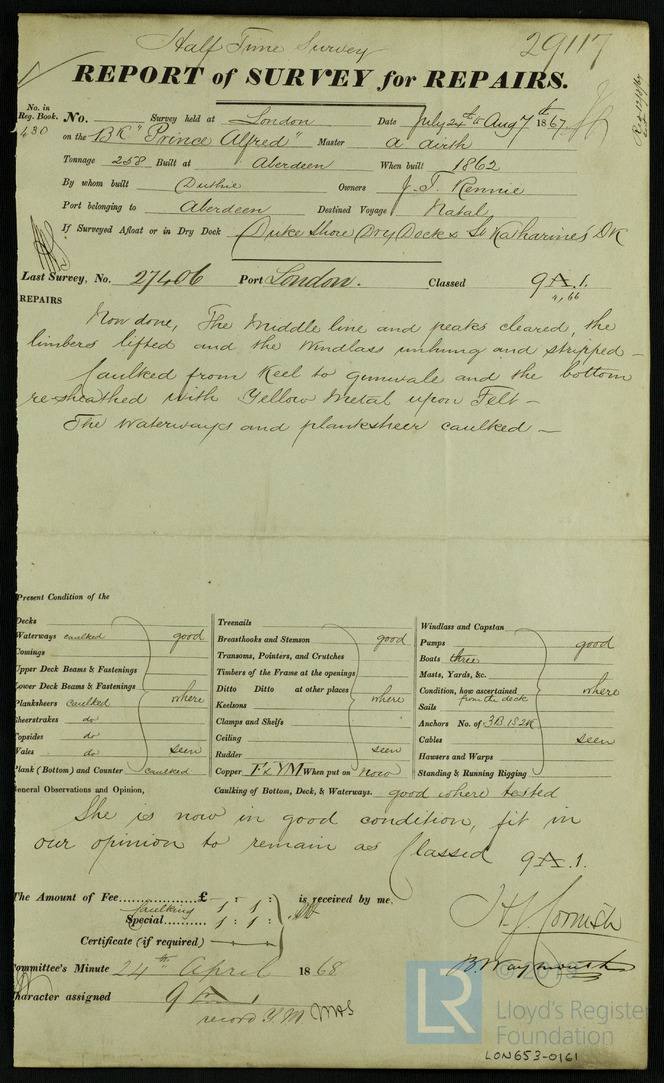 Half Time Survey
29117
REPORT of SURVEY for REPAIRS.
No. in Reg. Book. No. Survey held at London Date July 24th to Aug 7th 1867
430 on the BK "Prince Alfred" Master A Airth
Tonnage 258 Built at Aberdeen When built 1862
By whom built Duthie Owners J. T. Rennie
Port belonging to Aberdeen Destined Voyage Natal
If Surveyed Afloat or in Dry Dock Duke Shore Dry Dock & St Katharines DK
Last Survey, No. 27406 Port London. Classed 9 A. 1.
4,66
REPAIRS
Now done, The Middle line and peaks cleared, the
limbers lifted and the Windlass unhung and stripped —
Caulked from Keel to gunwale and the bottom
re-sheathed with Yellow Metal upon Felt —
The Waterways and planksheer caulked —
Present Condition of the
Decks
Waterways caulked good
Comings
Upper Deck Beams & Fastenings
Lower Deck Beams & Fastenings
Planksheers caulked where
Sheerstrakes do
Topsides do
Wales do seen
Plank (Bottom) and Counter caulked
Treenails
Breasthooks and Stemson good
Transoms, Pointers, and Crutches
Timbers of the Frame at the openings
Ditto Ditto at other places where
Keelsons
Clamps and Shelfs
Ceiling
Rudder seen
Copper F & YM When put on now
Windlass and Capstan
Pumps good
Boats three
Masts, Yards, &c.
Condition, how ascertained from the deck where
Sails
Anchors No. of 3B 1S 2K
Cables seen
Hawsers and Warps
Standing & Running Rigging
General Observations and Opinion, Caulking of Bottom, Deck, & Waterways. good where tested
She is now in good condition, fit in
our opinion to remain as Classed 9 A. 1.
The Amount of Fee £ 1 : 1 : is received by me,
Caulking
Special 1 : 1 :
Certificate (if required)
J H J Cornish
B. Waymouth
Committee's Minute 24th April 1868
Character assigned 9 A 1
record Y.M.
© 2019
LR
Lloyd's Register
Foundation
LON653-0161